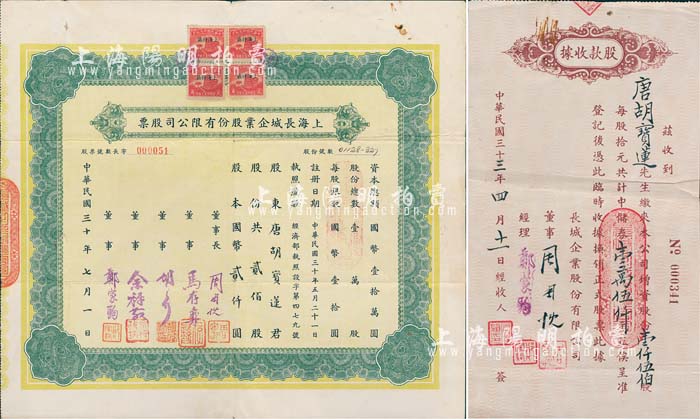 上海長城企業股份有限公司股票
股票號數長字 000051
股份號數 01128-327
資本總額 國幣壹拾萬圓
股份總數 壹萬股
每股銀數 國幣壹拾圓
註冊日期 中華民國三十年五月二十一日
執照號數 經濟部執照設字第四七九號
股東唐胡寶蓮君
股份共貳佰股
股本國幣貳仟圓
董事長
董事
董事
董事
董事 鄭家駒
中華民國三十年七月一日
股款收據
No 000341
茲收到
唐胡寶蓮先生繳來本公司增資股份壹仟伍佰股
每股拾元共計中儲券壹萬伍仟
登記後憑此臨時收據換領正式股票此據
長城企業股份有限公司
董事
經理
中華民國三十三年四月十一日經收人 簽
上海陽明拍賣
www.yangmingauction.com
上海陽明拍賣
www.yangmingauction.com